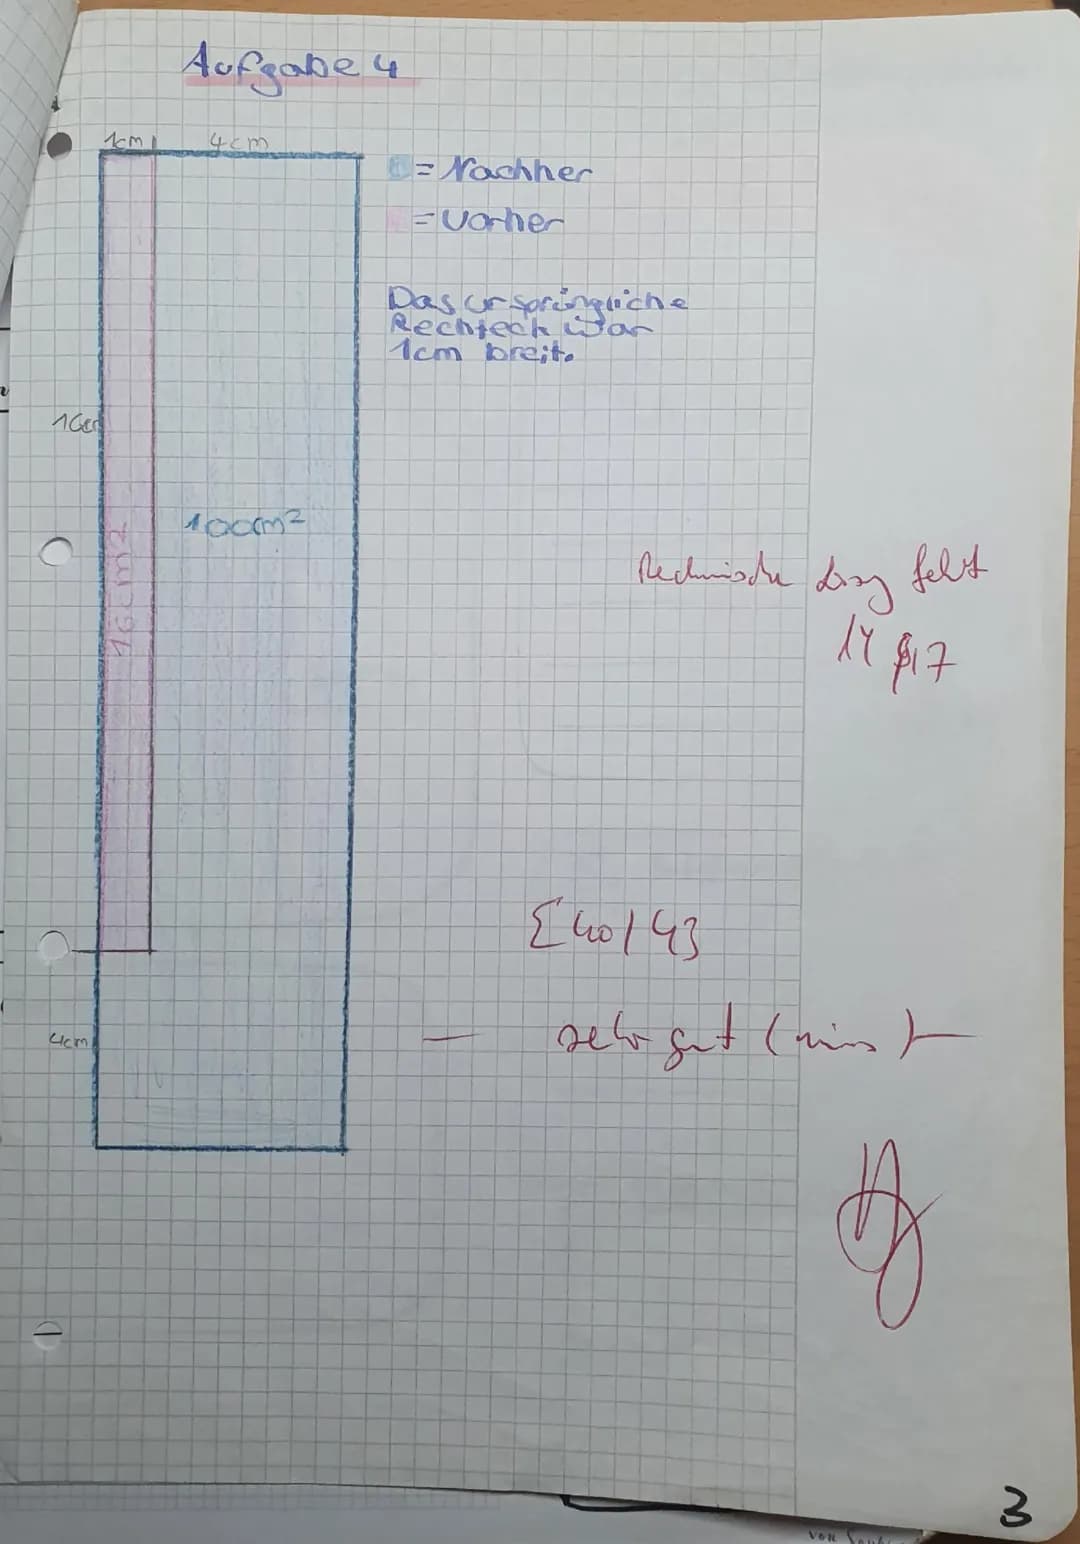 Aufgabe 4
1cm 4cm
= Nachher
= Vorher
Das ursprüngliche
Rechteck war
1cm breit.
16cm
100cm²
16cm²
Rechnische Lsg fehlt
14 17
Σ 40/43
4cm
— sehr gut (minus) —
3
von